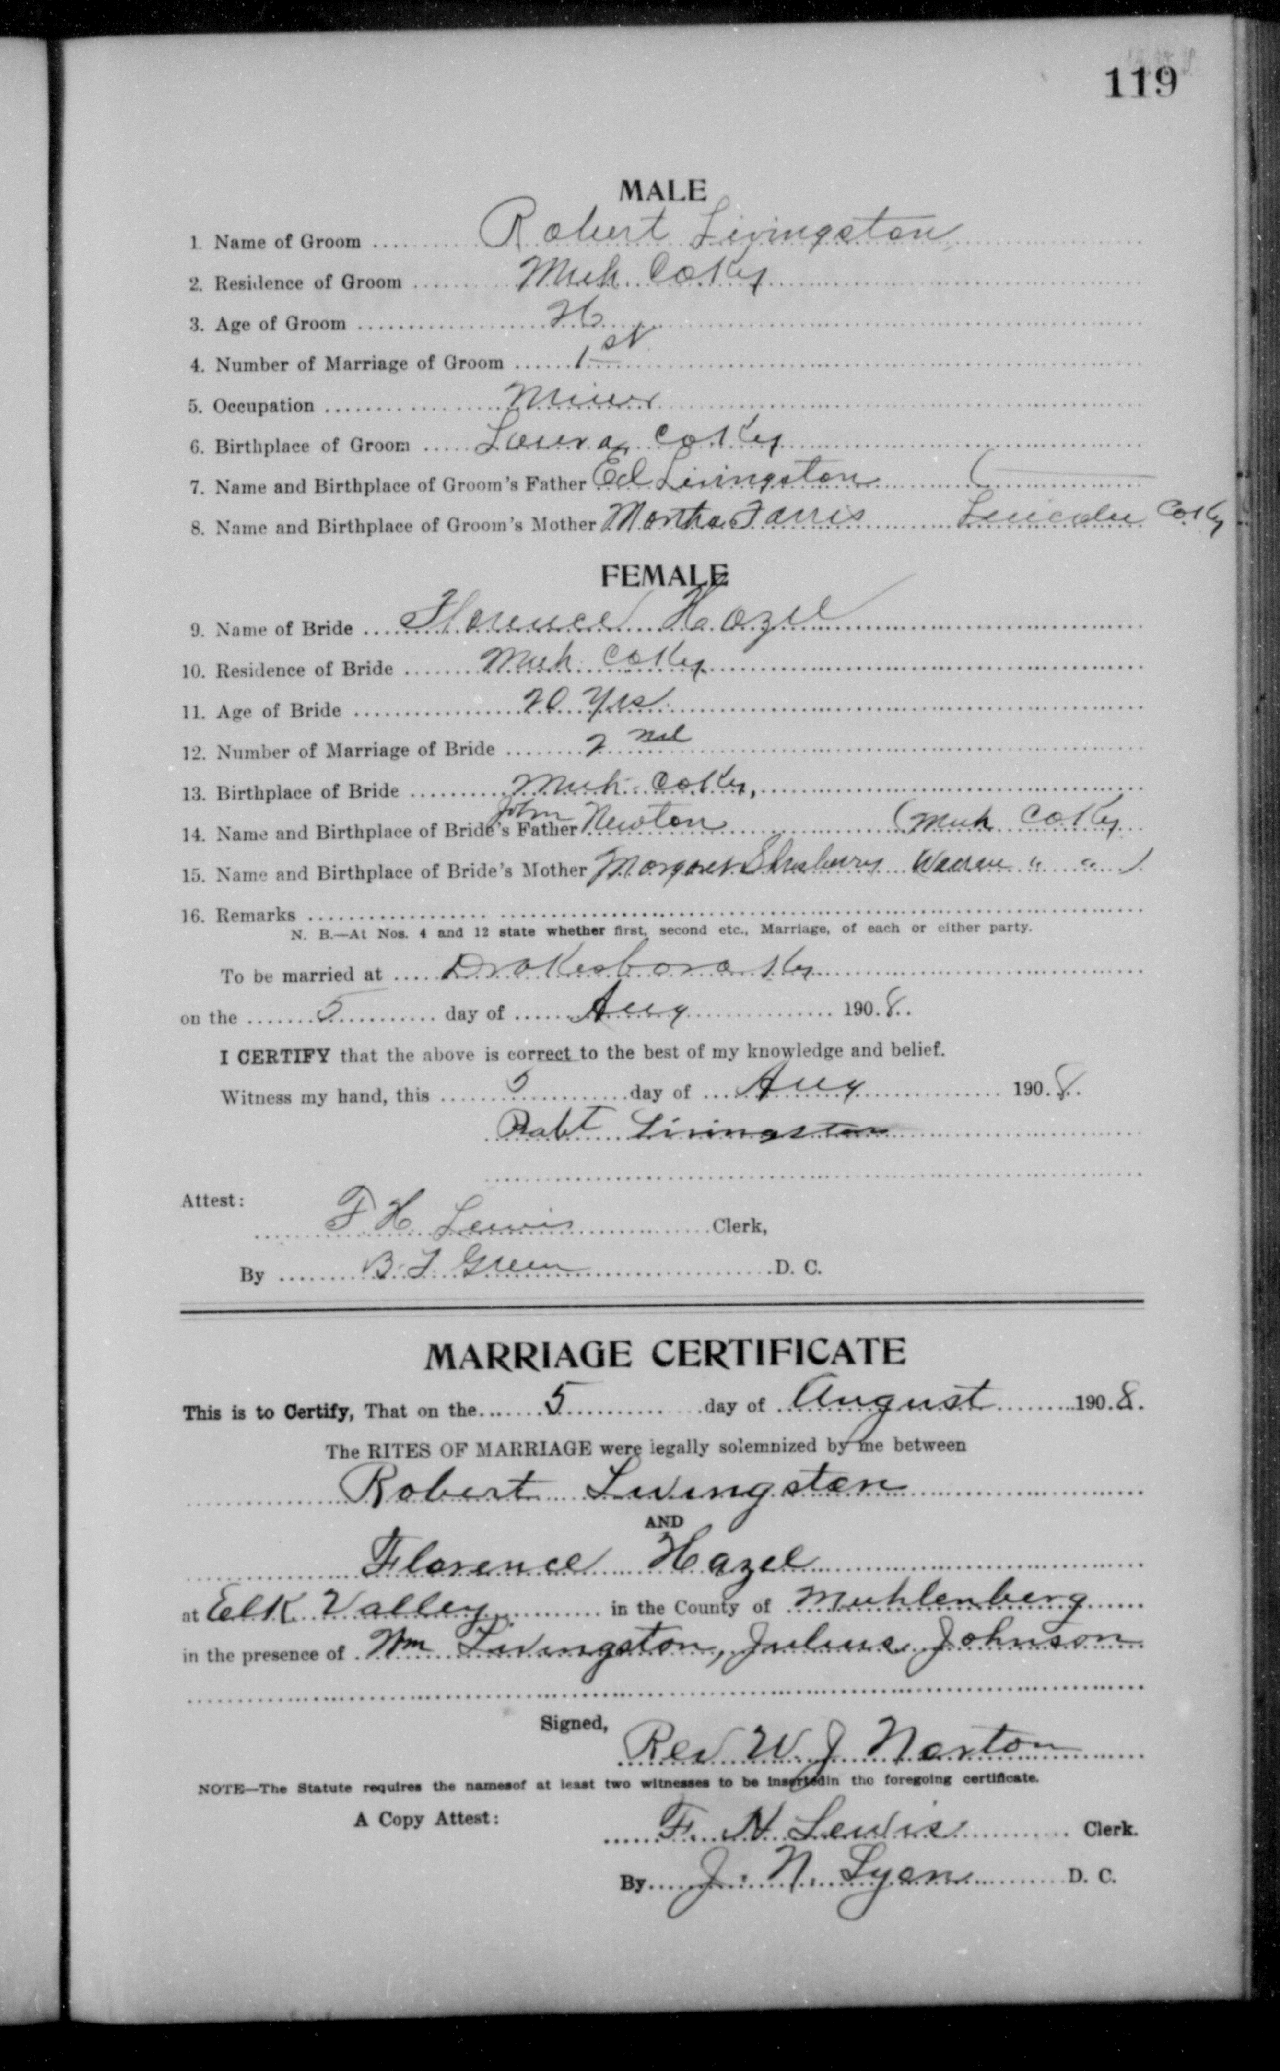 119
MALE
1 Name of Groom Robert Livingston
2. Residence of Groom Muh Co Ky
3. Age of Groom
4. Number of Marriage of Groom 1st
5. Occupation Miner
6. Birthplace of Groom Co Ky
7. Name and Birthplace of Groom's Father Ed Livingston (
8. Name and Birthplace of Groom's Mother Martha Farris Lincoln Co Ky
FEMALE
9. Name of Bride Florence Hazel
10. Residence of Bride Muh Co Ky
11. Age of Bride 20 Yrs
12. Number of Marriage of Bride 2nd
13. Birthplace of Bride Muh Co Ky,
14. Name and Birthplace of Bride's Father John Newton (Muh Co Ky
15. Name and Birthplace of Bride's Mother Margaret Warren " " )
16. Remarks
N. B.—At Nos. 4 and 12 state whether first, second etc., Marriage, of each or either party.
To be married at Drakesboro Ky
on the 5 day of Aug 1908.
I CERTIFY that the above is correct to the best of my knowledge and belief.
Witness my hand, this 5 day of Aug 1908.
Robt Livingston
Attest:
F H Lewis Clerk,
By B. F Green D. C.
MARRIAGE CERTIFICATE
This is to Certify, That on the 5 day of August 1908.
The RITES OF MARRIAGE were legally solemnized by me between
Robert Livingston
AND
Florence Hazel
at Elk Valley in the County of Muhlenberg
in the presence of Wm Livingston, Julius Johnson
Signed,
Rev W. J Norton
NOTE—The Statute requires the namesof at least two witnesses to be insertedin the foregoing certificate.
A Copy Attest:
F. H Lewis Clerk.
By J. N. Lyon D. C.